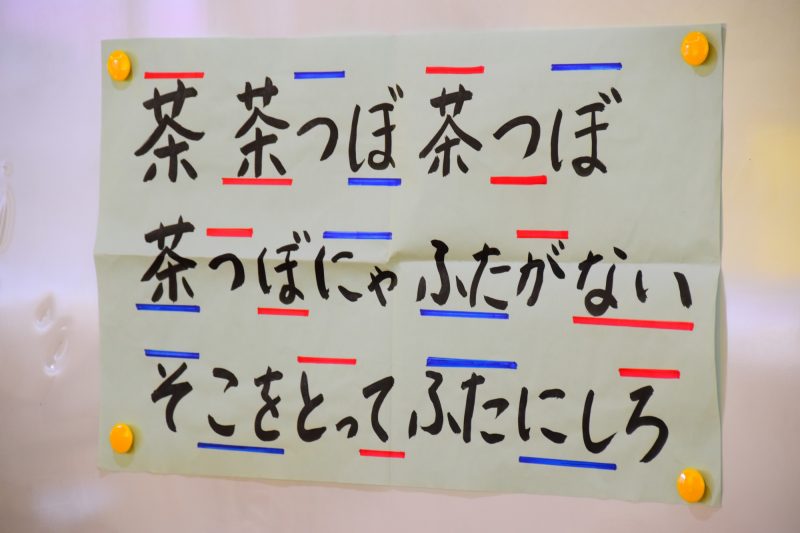 茶 茶つぼ 茶つぼ
茶つぼにゃ ふたがない
そこをとってふたにしろ